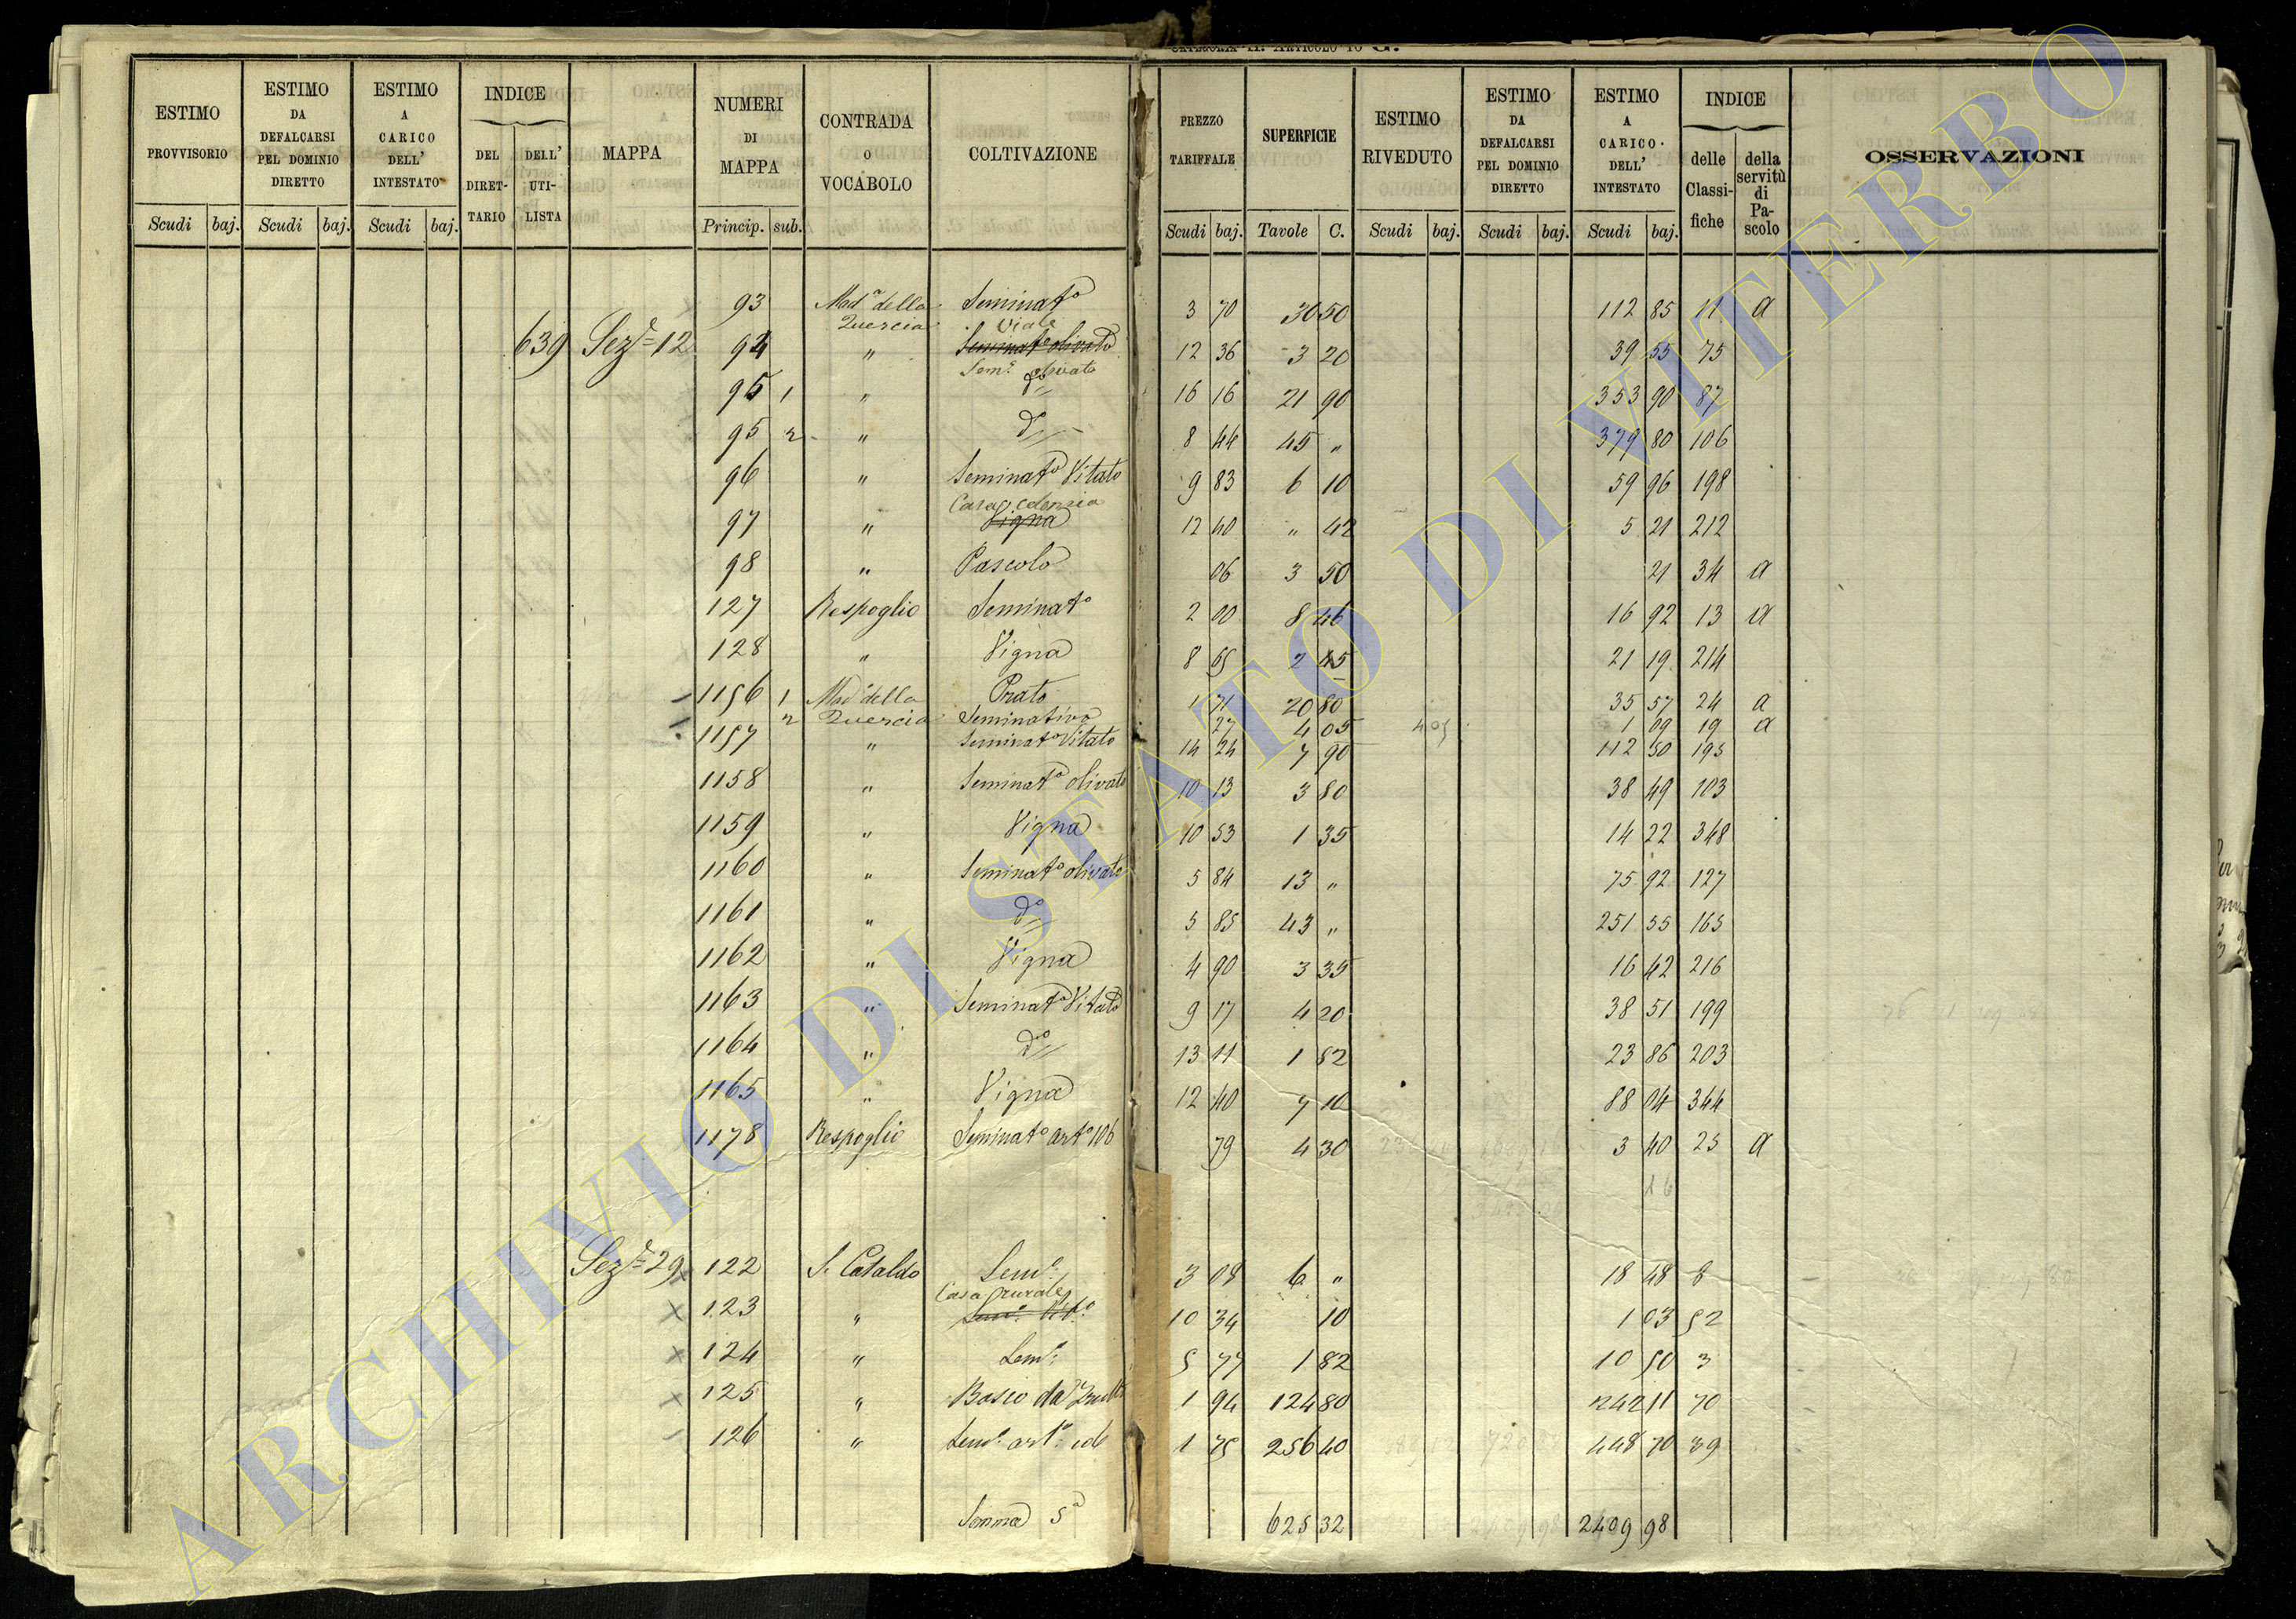 CATEGORIA II. ARTICOLO 10 G.
ESTIMO PROVVISORIO | ESTIMO DA DEFALCARSI PEL DOMINIO DIRETTO | ESTIMO A CARICO DELL' INTESTATO | INDICE DEL DIRETTARIO | DELL' UTILISTA | MAPPA | NUMERI DI MAPPA | CONTRADA O VOCABOLO | COLTIVAZIONE | PREZZO TARIFFALE | SUPERFICIE | ESTIMO RIVEDUTO | ESTIMO DA DEFALCARSI PEL DOMINIO DIRETTO | ESTIMO A CARICO DELL' INTESTATO | INDICE delle Classifiche | della servitù di Pascolo | OSSERVAZIONI
Scudi baj. | Scudi baj. | Scudi baj. | Princip. sub. | Scudi baj. | Tavole C. | Scudi baj. | Scudi baj. | Scudi baj.
93 Madª della Quercia Seminatº 3 70 30 50 112 85 11 a
Viale
639 Sezº 12 94 " Seminatº olivato 12 36 3 20 39 55 75
Semº olivato
95 1 " dº 16 16 21 90 353 90 87
95 2 " dº 8 44 45 " 379 80 106
96 " Seminatº Vitato 9 83 6 10 59 96 198
Casa
97 " Vigna 12 40 " 42 5 21 212
98 " Pascolo 06 3 50 21 34 a
127 Respoglio Seminatº 2 00 8 46 16 92 13 a
128 " Vigna 8 65 2 45 21 19 214
1156 1 Madª della Quercia Prato 1 71 20 80 35 57 24 a
2 Seminativo 27 4 05 405 1 09 19 a
1157 " Seminatº Vitato 14 24 7 90 112 50 195
1158 " Seminatº olivato 10 13 3 80 38 49 103
1159 " Vigna 10 53 1 35 14 22 348
1160 " Seminatº olivato 5 84 13 " 75 92 127
1161 " dº 5 85 43 " 251 55 165
1162 " Vigna 4 90 3 35 16 42 216
1163 " Seminatº Vitato 9 17 4 20 38 51 199
1164 " dº 13 11 1 82 23 86 203
1165 " Vigna 12 40 7 10 88 04 344
1178 Respoglio Seminatº artº 106 79 4 30 3 40 25 a
16
Sezº 29 x 122 S. Cataldo Semº 3 08 6 " 18 48 8
Casa rurale
x 123 " Semº Vitº 10 34 10 1 03 52
x 124 " Semº 5 77 1 82 10 50 3
x 125 " Bosco da 1 94 124 80 242 11 70
126 " Semº artº 106 1 75 256 40 448 70 39
Somma Sª 625 32 2409 98
ARCHIVIO DI STATO DI VITERBO